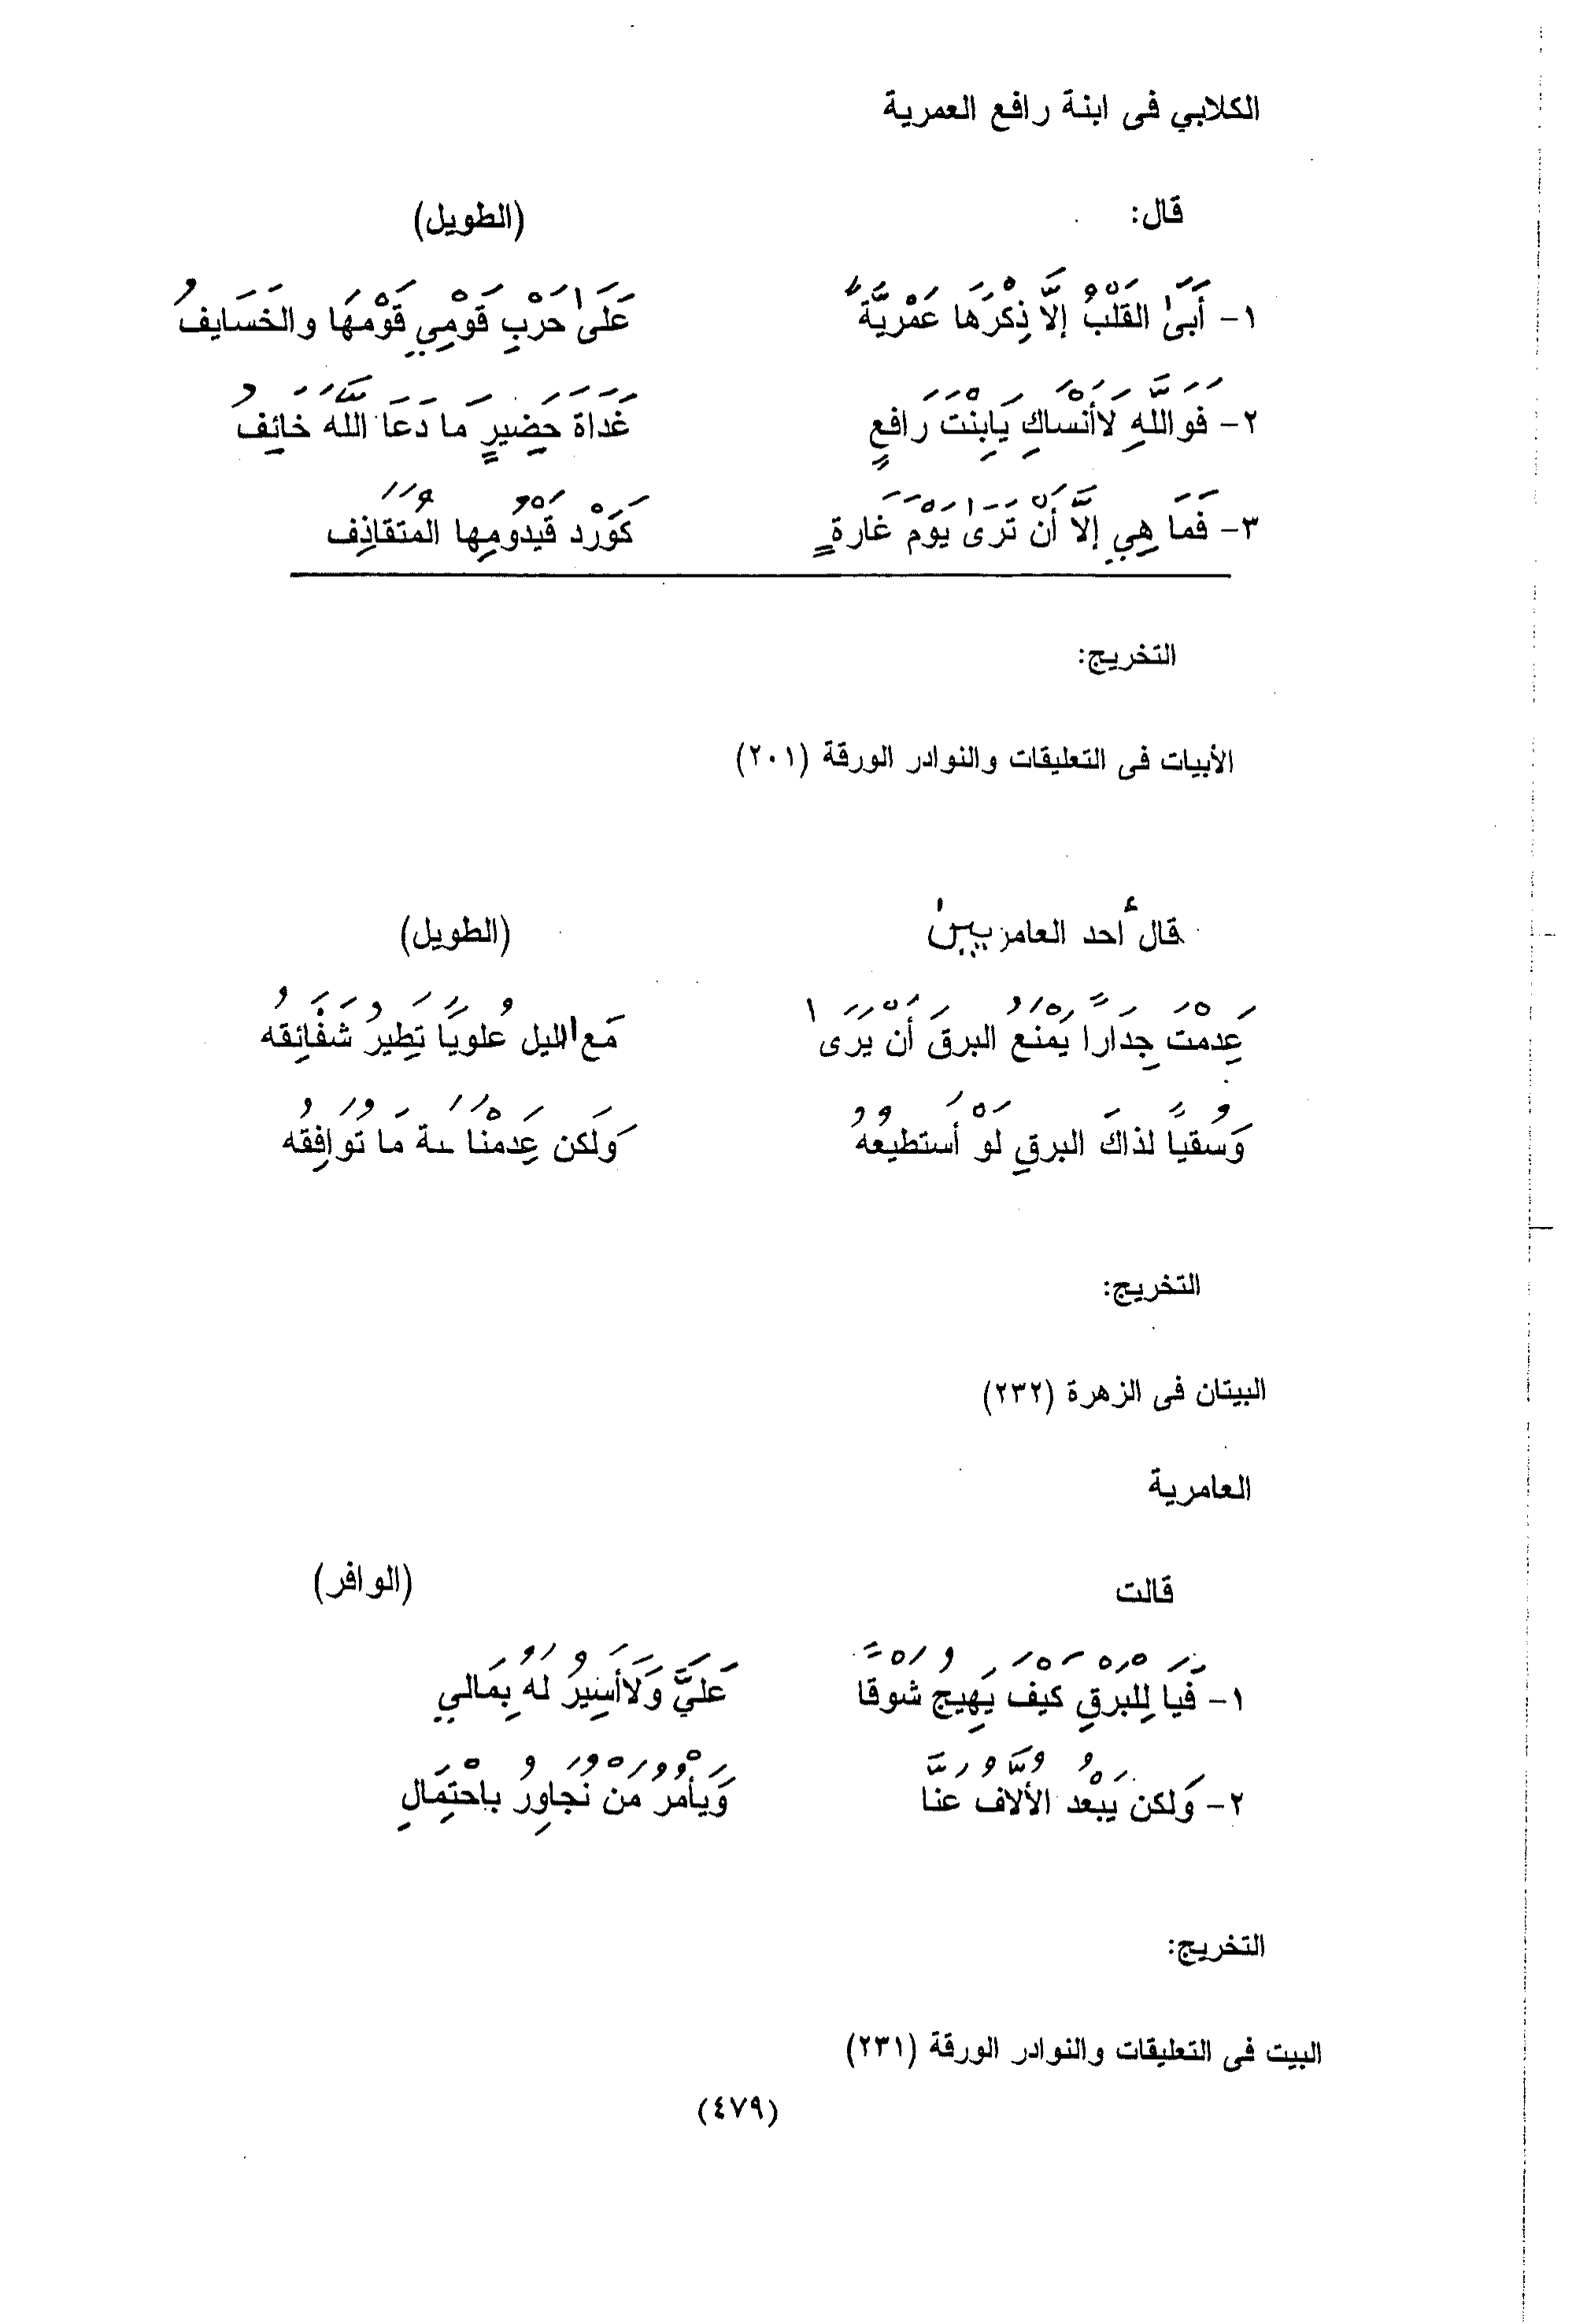 الكلابي فى ابنة رافع العمرية
قال: (الطويل)
١- أَبَىٰ القَلْبُ إلَّا ذِكْرَهَا عَمْرِيَّةً عَلَى حَرْبِ قَوْمِي قَوْمَهَا والخَسَايفُ
٢- فَوَاللَّهِ لاأَنْسَاكِ يَابِنْتَ رَافِعٍ غَدَاةَ حَضِيرٍ مَا دَعَا اللَّهَ خَائِفُ
٣- فَمَا هِي إلَّا أَنْ تَرَى يَوْمَ غَارةٍ كَوَرْد قَيْدُومِها المُتَقَاذِف
التخريج:
الأبيات فى التعليقات والنوادر الورقة (٢٠١)
قال أحد العامريين (الطويل)
عَدِمْتَ جِدَاراً يَمْنَعُ البرقَ أَن يَرَى مَع الليل عُلوياً تَطِيرُ شَقَائِقُه
وَسُقياً لذاكَ البرقِ لَوْ أَستطيعُهُ وَلَكن عَدِمْنَا مَا تُوَافِقُه
التخريج:
البيتان فى الزهرة (٢٣٢)
العامرية
قالت (الوافر)
١- فَيَا لِلْبَرْقِ كَيْفَ يَهِيجُ شَوْقاً عَلَيَّ وَلَاأَسِيرُ لَهُ بِمَالي
٢- وَلَكن يَبْعُد الأُلَّافُ عَنَّا وَيأْمُرُ مَنْ نُجَاوِرُ باحْتِمَالِ
التخريج:
البيت فى التعليقات والنوادر الورقة (٢٣١)
(٤٧٩)